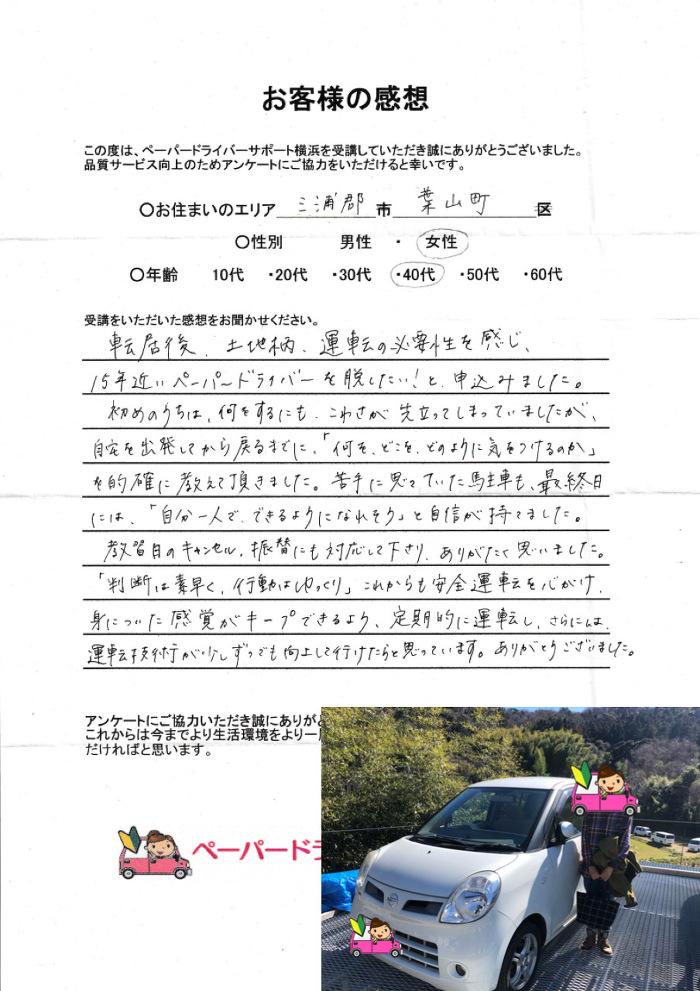 お客様の感想
この度は、ペーパードライバーサポート横浜を受講していただき誠にありがとうございました。
品質サービス向上のためアンケートにご協力をいただけると幸いです。
〇お住まいのエリア 三浦郡 市 葉山町 区
〇性別 男性 ・ 女性
〇年齢 10代 ・20代 ・30代 ・40代 ・50代 ・60代
受講をいただいた感想をお聞かせください。
転居後、土地柄、運転の必要性を感じ、
15年近いペーパードライバーを脱したい!と、申込みました。
初めのうちは、何をするにも、こわさが先立ってしまっていましたが、
自宅を出発してから戻るまでに、「何を、どこを、どのように気をつけるのか」
を的確に教えて頂きました。苦手に思っていた駐車も、最終日
には、「自分一人で、できるようになれそう」と自信が持てました。
教習日のキャンセル、振替にも対応して下さり、ありがたく思いました。
「判断は素早く、行動はゆっくり」これからも安全運転を心がけ、
身についた感覚がキープできるよう、定期的に運転し、さらには、
運転技術が少しずつでも向上して行けたらと思っています。ありがとうございました。
アンケートにご協力いただき誠にありがと
これからは今までより生活環境をより一
だければと思います。
ペーパードラ